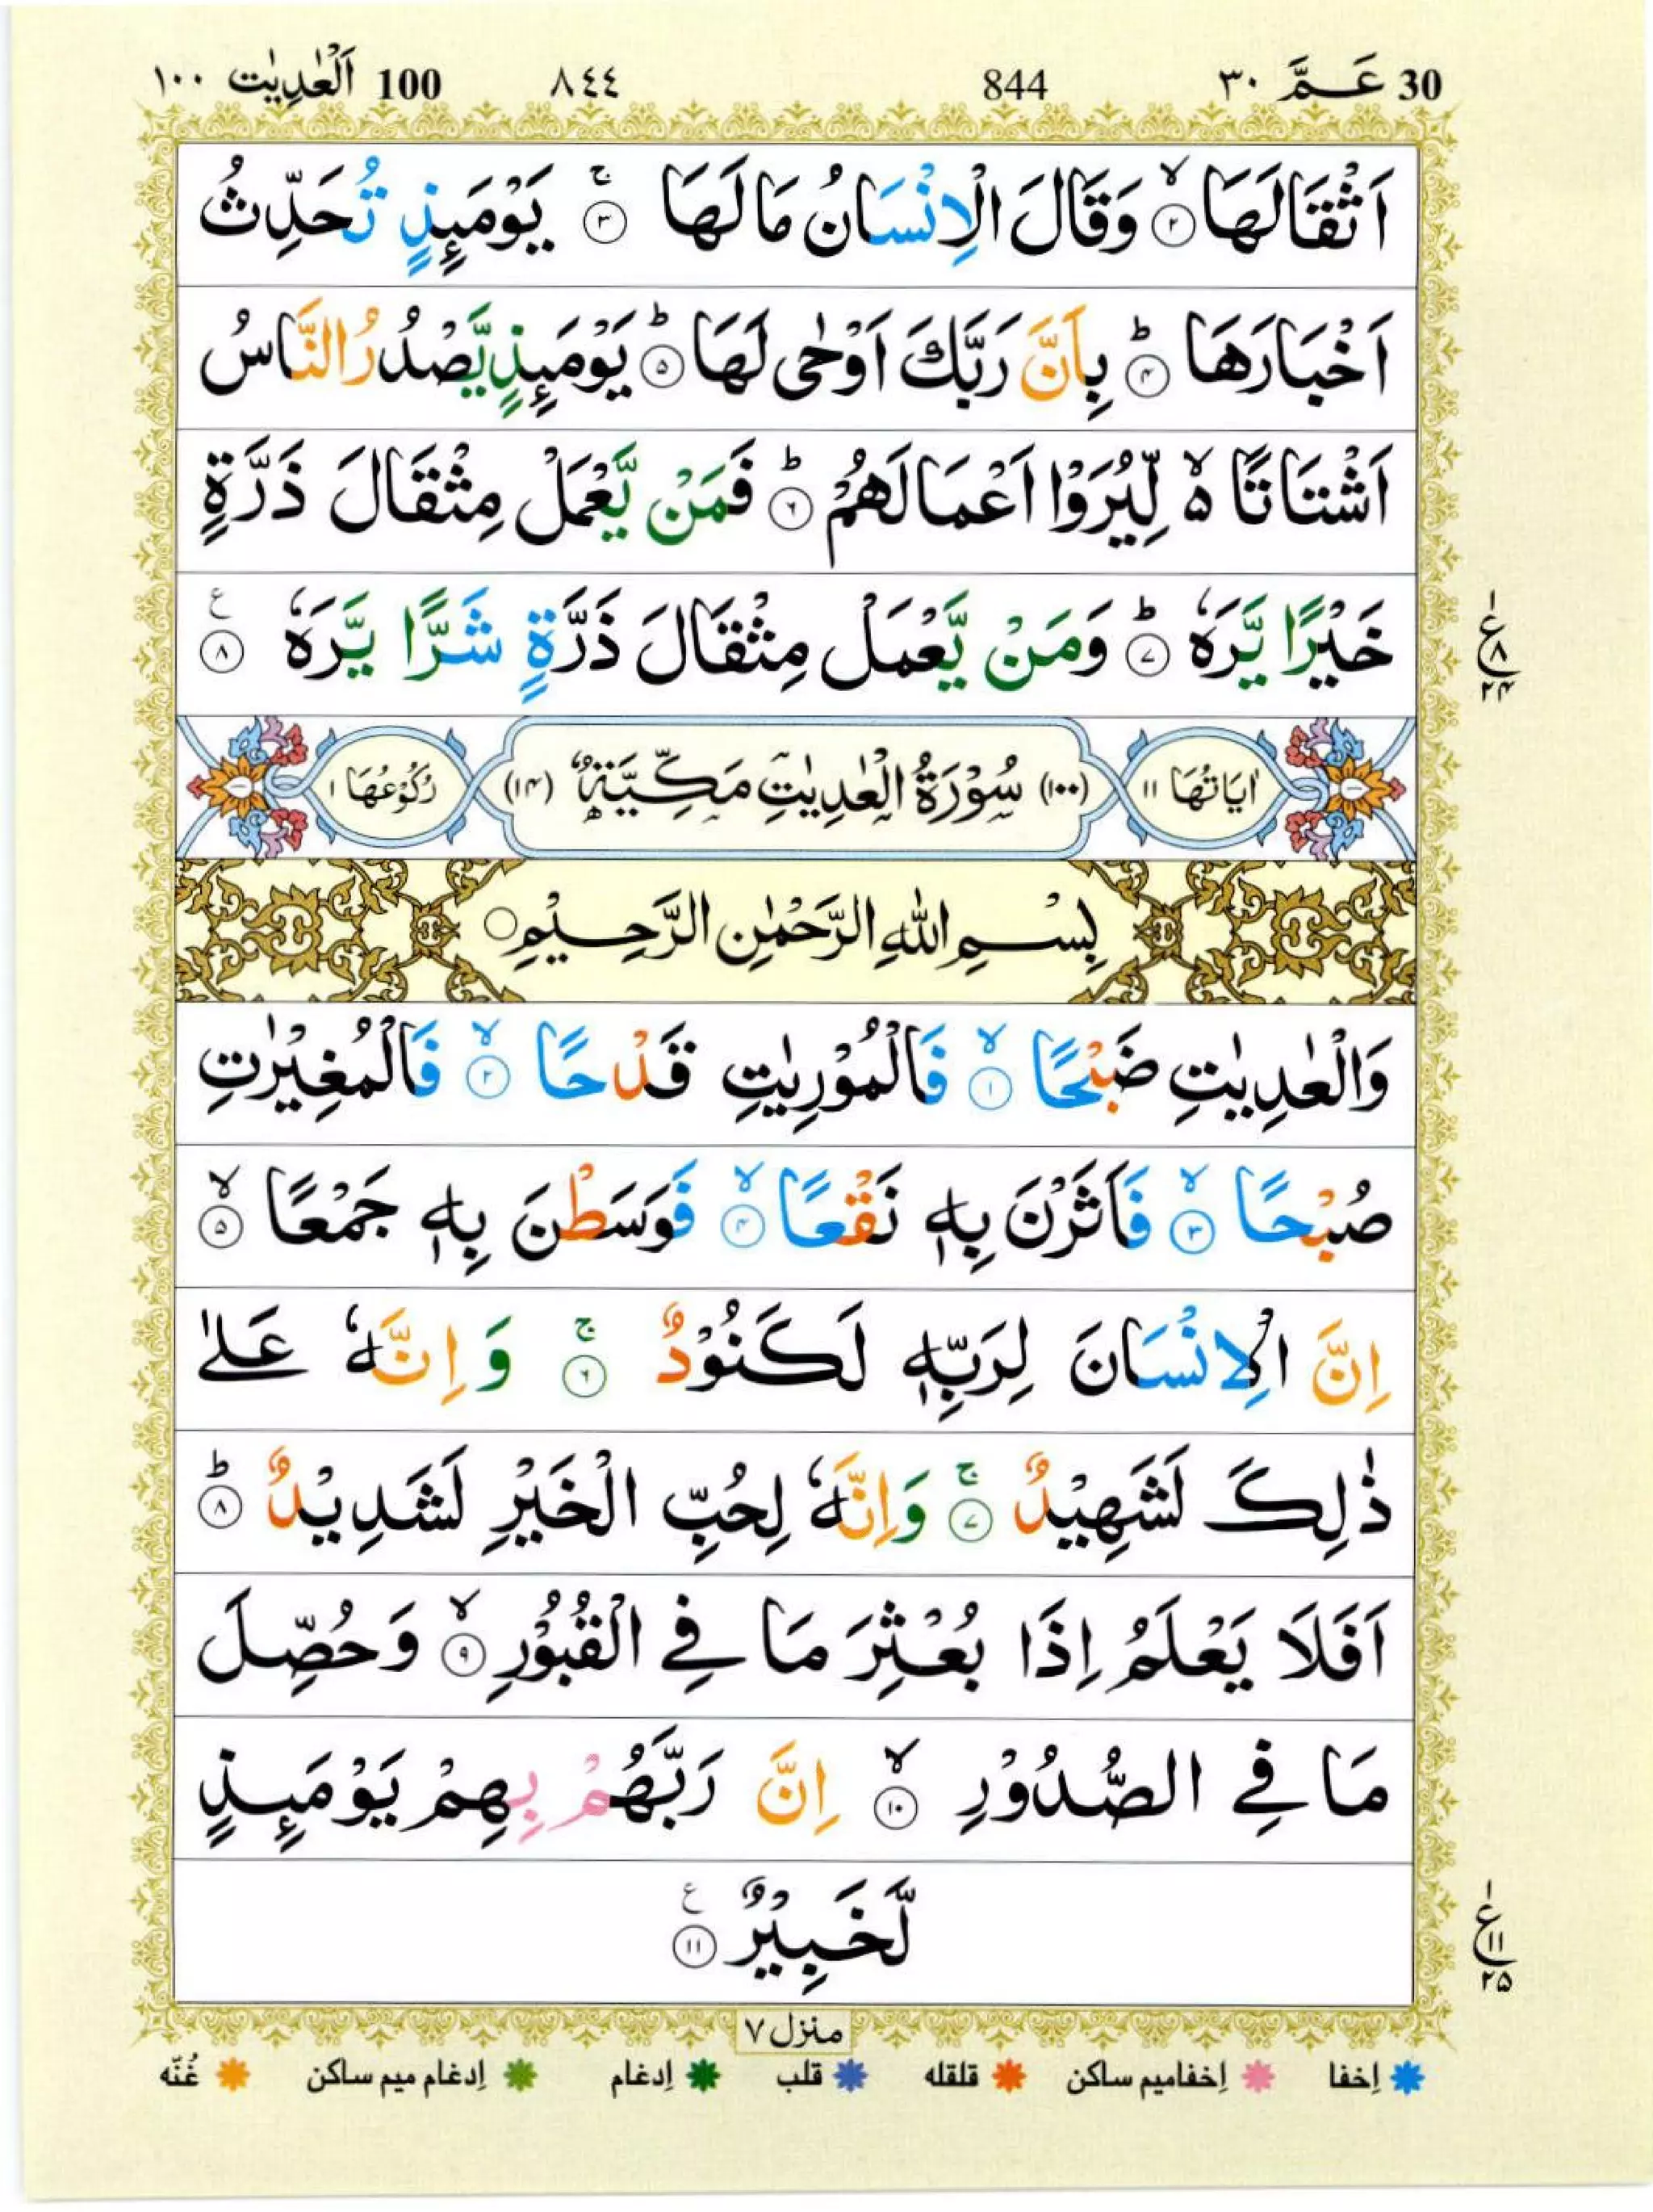 30 عَــمَّ ٣٠ 844 ٨٤٤ 100 اَلْعٰدِيٰت ١٠٠
اَثْقَالَهَا ۙ۝۲ وَقَالَ الْاِنْسَانُ مَا لَهَا ۚ۝۳ يَوْمَىِٕذٍ تُحَدِّثُ
اَخْبَارَهَا ؕ۝۴ بِاَنَّ رَبَّكَ اَوْحٰى لَهَا ؕ۝۵ يَوْمَىِٕذٍ يَّصْدُرُ النَّاسُ
اَشْتَاتًا ۙ۬ لِّيُرَوْا اَعْمَالَهُمْ ؕ۝۶ فَمَنْ يَّعْمَلْ مِثْقَالَ ذَرَّةٍ
خَيْرًا يَّرَهٗ ؕ۝۷ وَمَنْ يَّعْمَلْ مِثْقَالَ ذَرَّةٍ شَرًّا يَّرَهٗ ۝۸ ع
ع ۱ ۸ ۲۴
اٰيَاتُهَا ١١ (١٠٠) سُوْرَةُ الْعٰدِيٰتِ مَكِّيَّةٌ (١۴) رُكُوْعُهَا ١
بِسْمِ اللهِ الرَّحْمٰنِ الرَّحِيْمِ ○
وَالْعٰدِيٰتِ ضَبْحًا ۙ۝۱ فَالْمُوْرِيٰتِ قَدْحًا ۙ۝۲ فَالْمُغِيْرٰتِ
صُبْحًا ۙ۝۳ فَاَثَرْنَ بِهٖ نَقْعًا ۙ۝۴ فَوَسَطْنَ بِهٖ جَمْعًا ۙ۝۵
اِنَّ الْاِنْسَانَ لِرَبِّهٖ لَكَنُوْدٌ ۚ۝۶ وَاِنَّهٗ عَلٰى
ذٰلِكَ لَشَهِيْدٌ ۚ۝۷ وَاِنَّهٗ لِحُبِّ الْخَيْرِ لَشَدِيْدٌ ؕ۝۸
اَفَلَا يَعْلَمُ اِذَا بُعْثِرَ مَا فِي الْقُبُوْرِ ۙ۝۹ وَحُصِّلَ
مَا فِي الصُّدُوْرِ ۙ۝۱۰ اِنَّ رَبَّهُمْ بِهِمْ يَوْمَىِٕذٍ
لَّخَبِيْرٌ ۝۱۱ ع
ع ۱ ۱۱ ۲۵
منزل ٧
اِخفا اِخفامیم ساکن قلقله قلب اِدغام اِدغام میم ساکن غُنّه